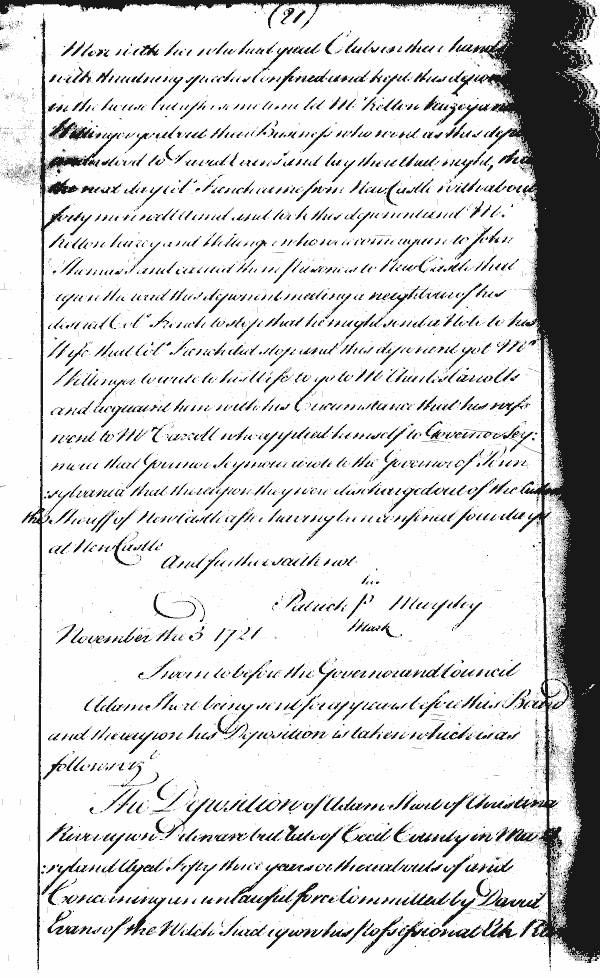 (21)
More with her who had great Clubs in their hands
with threatning speeches Confined and kept this depon
in the house but after some time let Mr Kelton
Willinger go about their Business who went as this dep
understood to David Evans and lay there that night, that
the next day Col. French came from New Castle with about
forty men well armed and took this deponent and Mr.
Kelton and Willinger whom come again to John
Thomas's and carried them Prisoners to New Castle that
upon the road this deponent meeting a neighbour of his
desired Col. French to stop that he might send a Note to his
Wife that Col. French did stop and this deponent got Mr.
Willinger to write to his Wife to go to Mr Charles Carrolls
and acquaint him with his Circumstance that his wife
went to Mr Carroll who applied himself to Governor Sey:
mour that Governor Seymour wrote to the Governor of Penn
:sylvania that thereupon they were discharged out of the Custod
the Sheriff of New Castle after having been confined four days
at New Castle
And further saith not
his
Patrick P Murphy
Mark
November the 3 1721
Sworn to before the Governor and Council
Adam Short being sent for appears before this Board
and thereupon his Deposition is taken which is as
follows viz
The Deposition of Adam Short of Christina
River upon Delaware but late of Cecil County in Ma
:ryland Aged Fifty three years or thereabouts of and
Concerning an unlawful force Committed by David
Evans of the Welch Tract upon his Possession at Elk